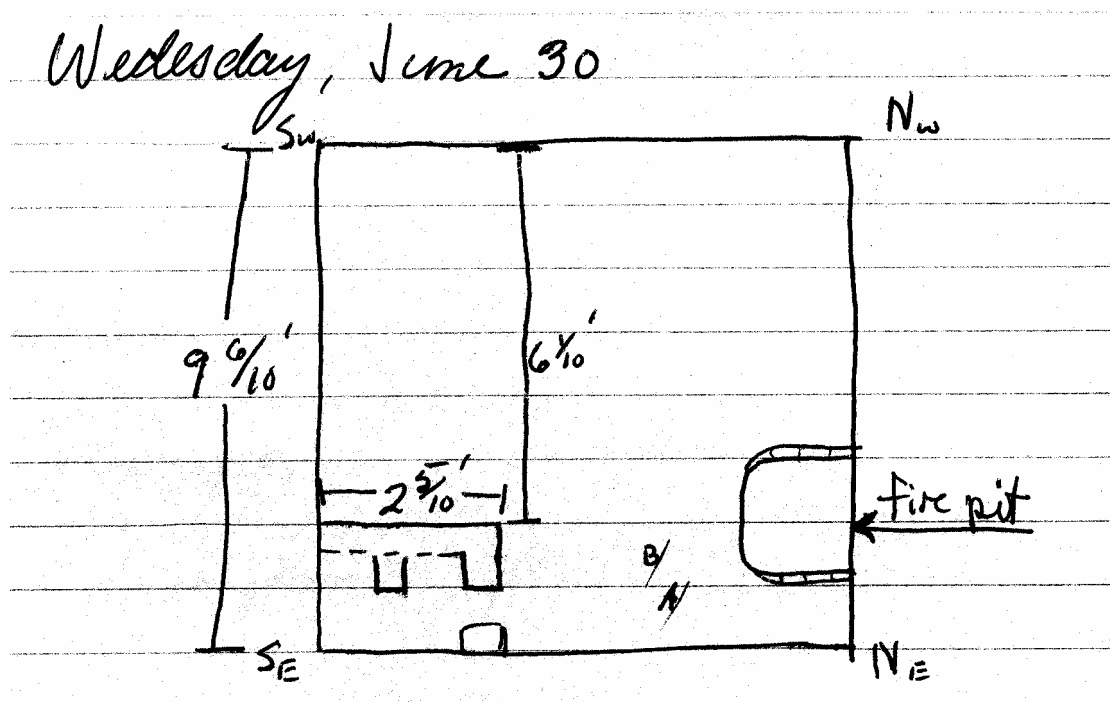 Wedesday, June 30
SW NW
9 6/10'
6 1/10'
2 5/10'
Fire pit
B/N
SE NE